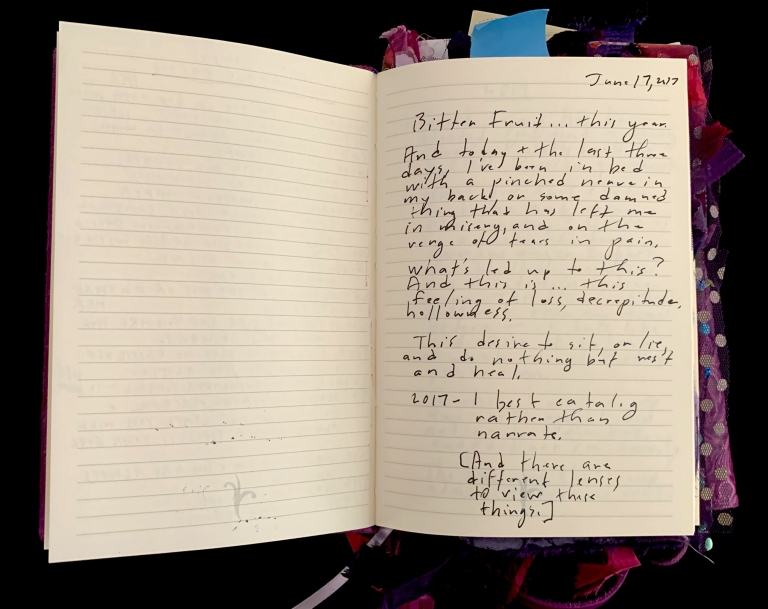 June 17, 2017
Bitter Fruit... this year.
And today + the last three
days, I've been in bed
with a pinched nerve in
my back or some damned
thing that has left me
in misery, and on the
verge of tears in pain.
What's led up to this?
And this is... this
feeling of loss, decrepitude,
hollowness.
This desire to sit, or lie,
and do nothing but rest
and heal.
2017- I best catalog
rather than
narrate.
[And there are
different lenses
to view these
things.]